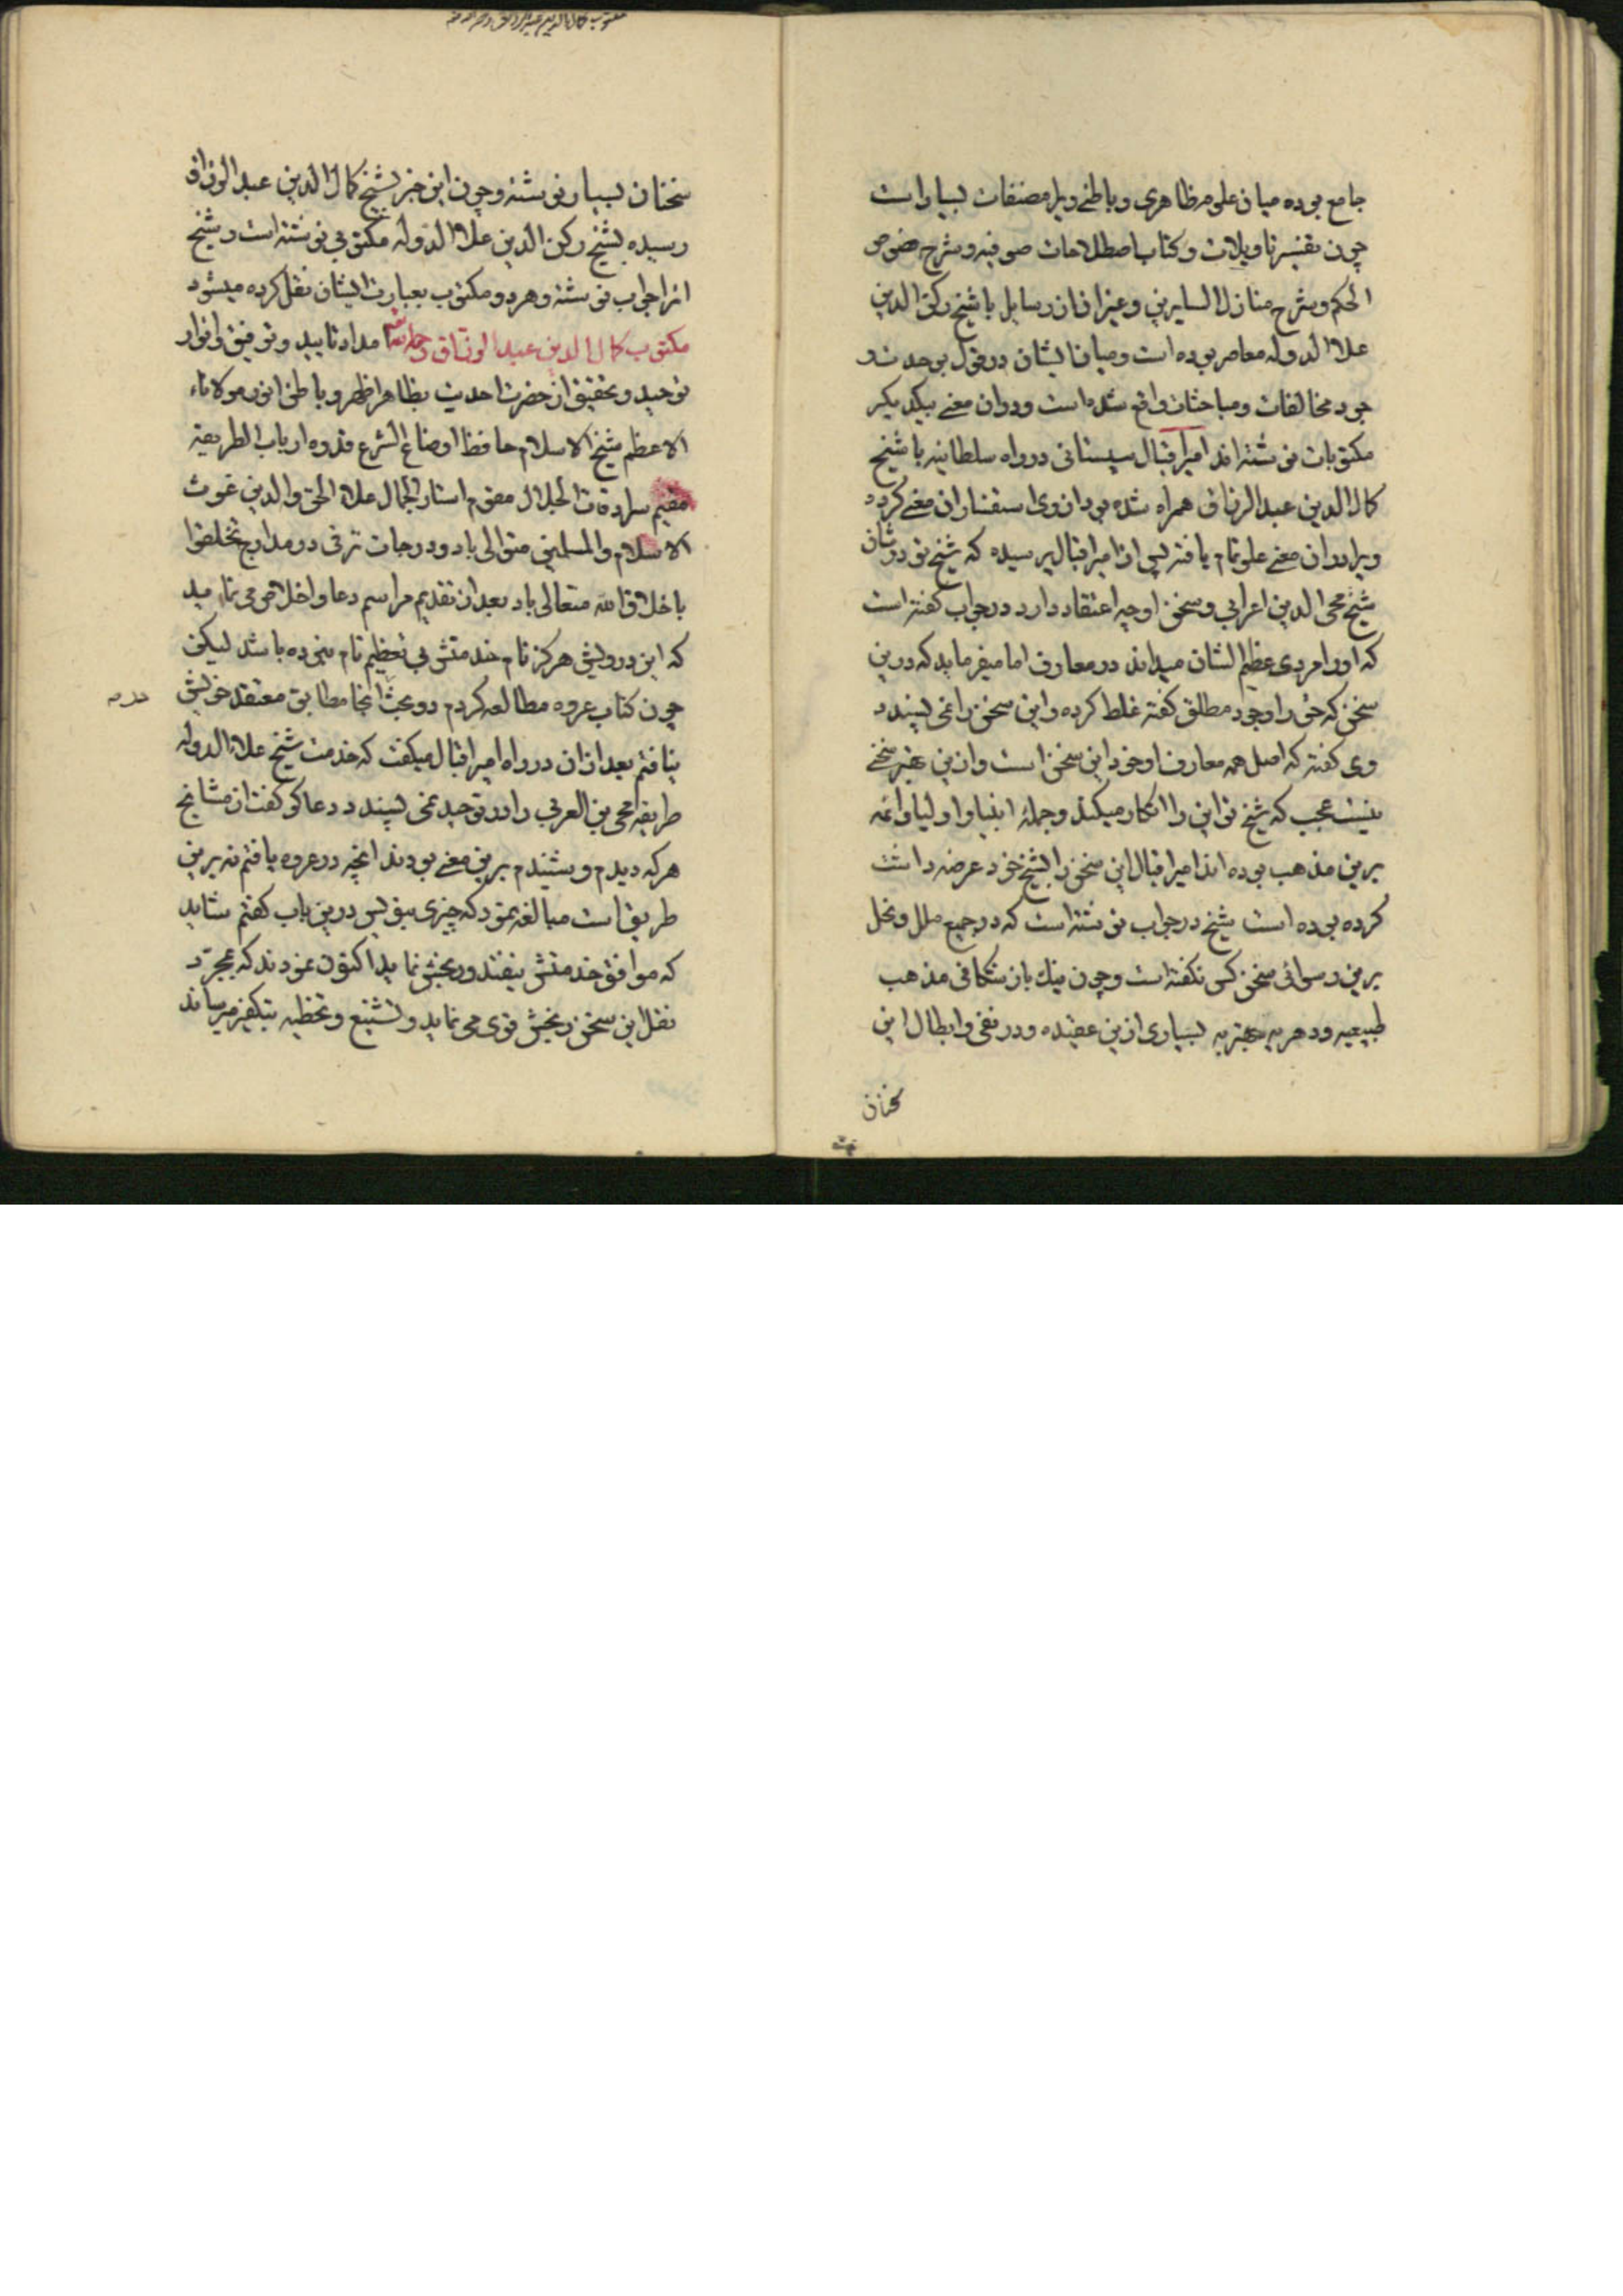 جامع بوده میان علوم ظاهری و باطنی ویرا مصنفات بسیار است
چون تفسیر تاویلات و کتاب اصطلاحات صوفیه و شرح فصوص
الحکم و شرح منازل السایرین و غیر آن از رسایل با شیخ رکن الدین
علاالدوله معاصر بوده است و میان ایشان در قول بوحدت و
جود مخالفات و مباحثات واقع شده است و در آن معنی بیکدیگر
مکتوبات نوشته اند امیر اقبال سیستانی در راه سلطانیه با شیخ
کمال الدین عبد الرزاق همراه شده بود از وی استفسار آن معنی کرده
ویرا در آن معنی غلو تمام یافته پس از امیر اقبال پرسیده که شیخ تو در شان
شیخ محی الدین اعرابی و سخن او چه اعتقاد دارد در جواب گفته است
که او را مردی عظیم الشان میداند در معارف اما میفرماید که درین
سخن که حق را وجود مطلق گفته غلط کرده و این سخن را نمی پسندد
وی گفته که اصل همه معارف او خود این سخن است و ازین بهتر سخنی
نیست عجب که شیخ تو این را انکار میکند و جملهٔ انبیا و اولیا و ائمه
برین مذهب بوده اند امیر اقبال این سخن را بشیخ خود عرضه داشت
کرده بوده است شیخ در جواب نوشته است که در جمیع ملل و نحل
برین رسوائی سخن کس نگفته است و چون نیک باز شکافی مذهب
طبیعیه و دهریه بهتر به بسیاری ازین عقیده و در نفی و ابطال این
سخنان
مکتوب کمال الدین عبدالرزاق رحمه الله
سخنان بسیار نوشته و چون این خبر بشیخ کمال الدین عبد الرزاق
رسیده بشیخ رکن الدین علاالدوله مکتوبی نوشته است و شیخ
انرا جواب نوشته و هر دو مکتوب بعبارت ایشان نقل کرده میشود
مکتوب کمال الدین عبد الرزاق رحمه الله امداد تایید و توفیق و انوار
توحید و تحقیق از حضرت احدیت بظاهر اظهر و باطن انور مولاناء
الاعظم شیخ الاسلام حافظ اوضاع الشرع قدوه ارباب الطریقه
مقیم سرادقات الجلال مقوم استار الجمال علاء الحق والدین غوث
الاسلام والمسلمین متوالی باد و درجات ترقی در مدارج تخلقوا
باخلاق الله متعالی باد بعد از تقدیم مراسم دعا و اخلاص می نماید
که این درویش هرگز نام خدمتش بی تعظیم تام نبرده باشد لیکن
چون کتاب عروه مطالعه کردم دو بحث انجا مطابق معتقد خویش
نیافتم بعد از ان در راه امیر اقبال میگفت که خدمت شیخ علاء الدوله
طریقه محی بن العربی را در توحید نمی پسندد دعا گو گفت از مشایخ
هر که دیدم و شنیدم برین معنی بودند انچه در عروه یافتم نه برین
طریق است مبالغه نمود که چیزی بنویس درین باب گفتم شاید
که موافق خدمتش نیفتد و رنجش نماید اکنون نمودند که بمجرد
نقل این سخن رنجش قوی می نماید و تشنیع و تخطیه بتکفیر میرساند